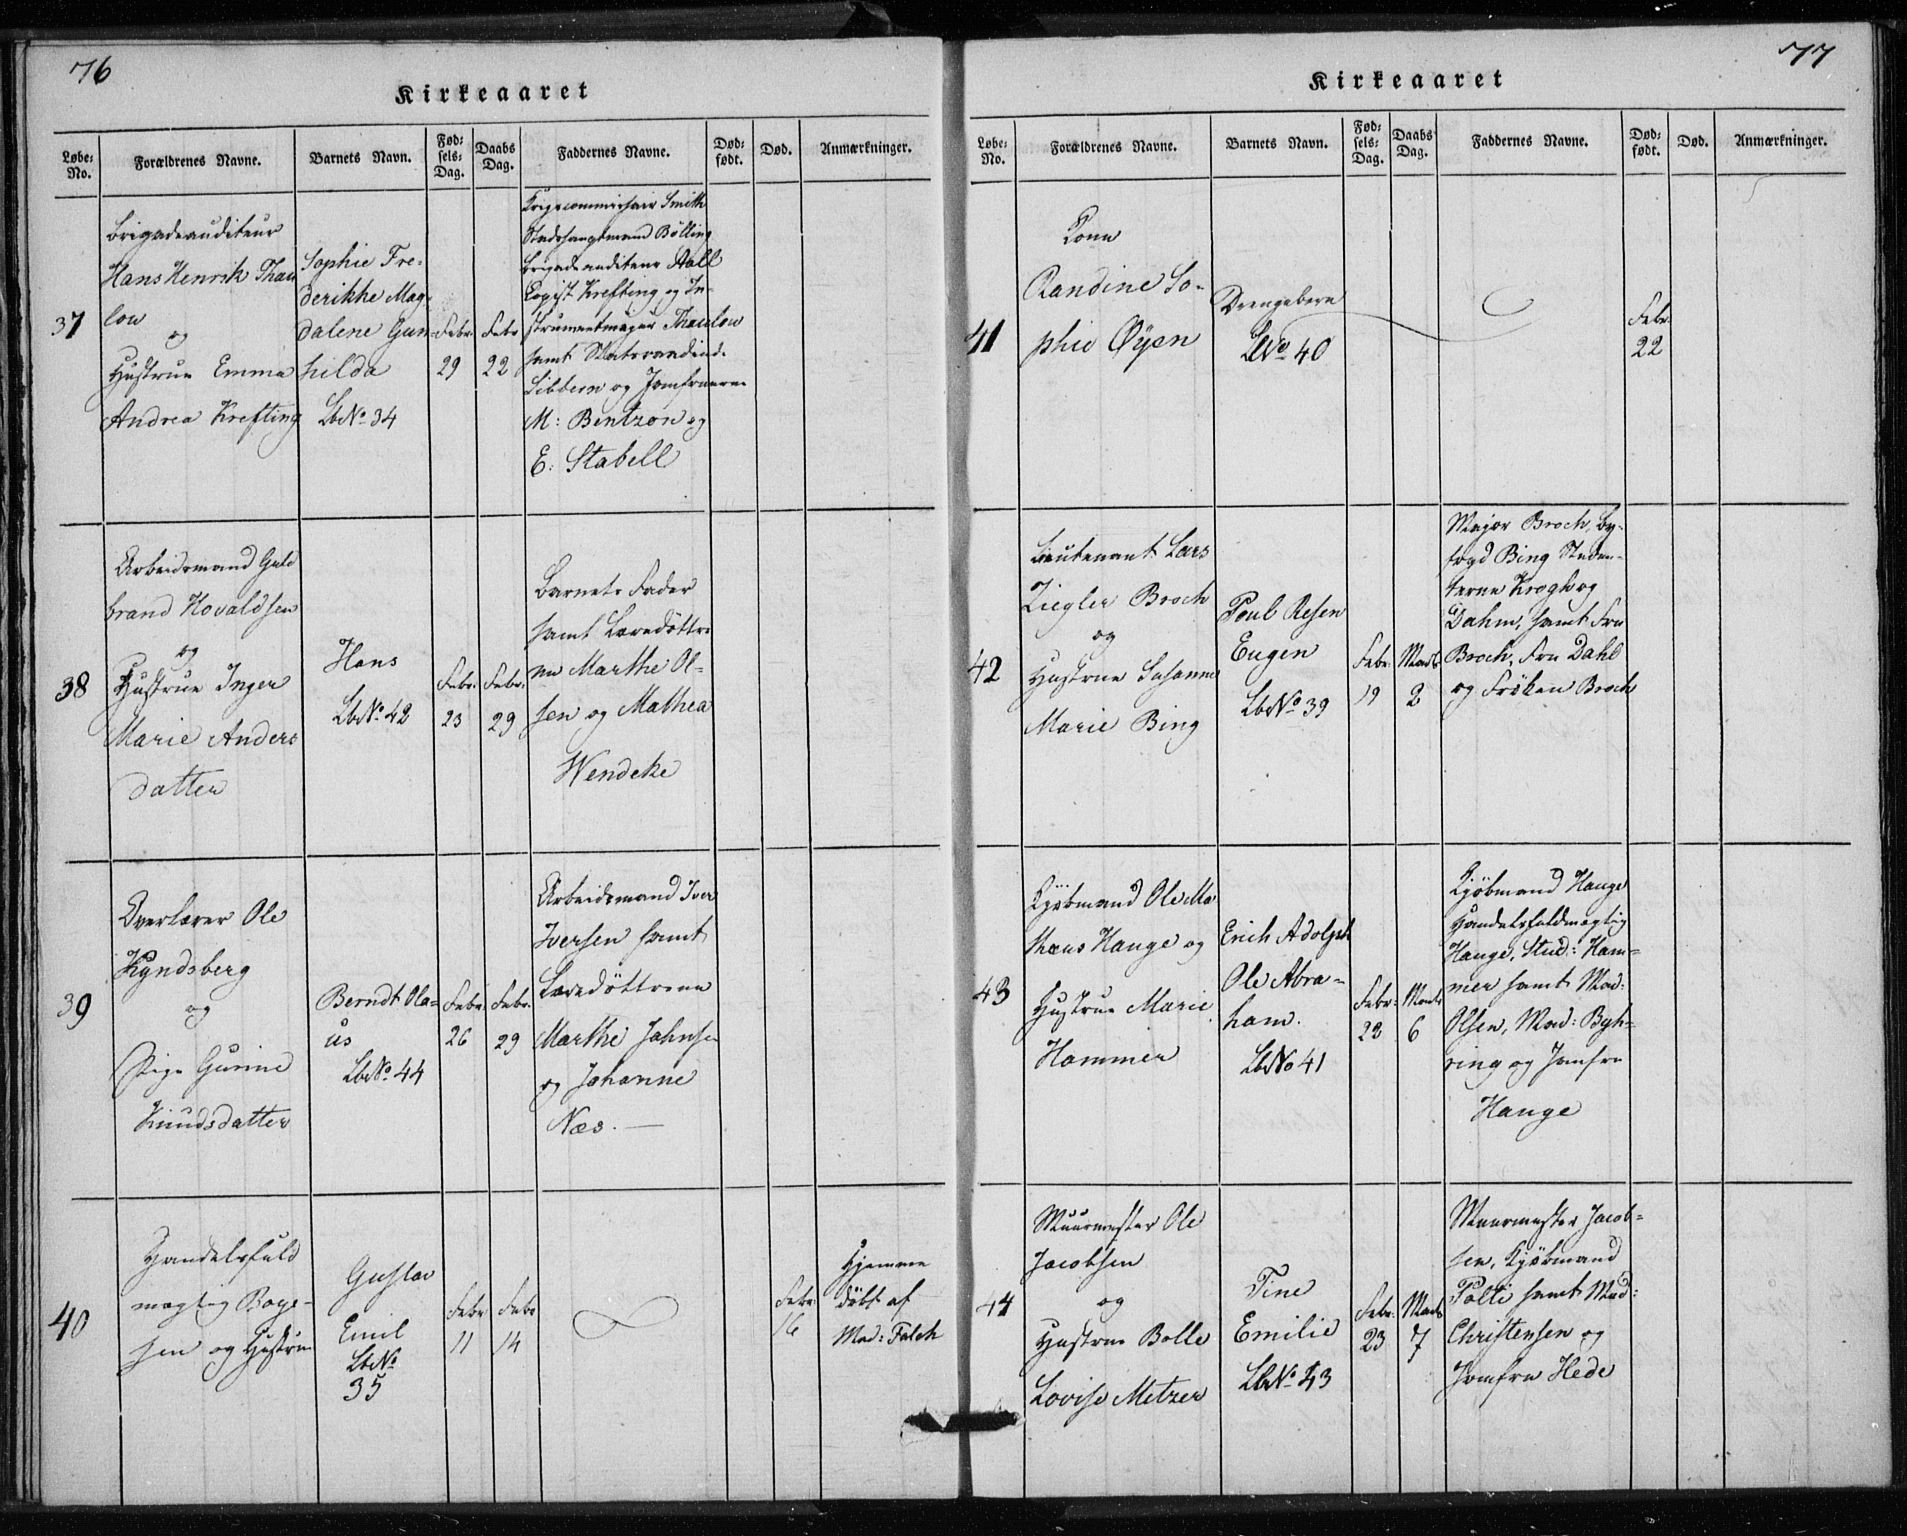 76
Kirkeaaret
Løbe-
No.
Forældrenes Navne.
Barnets Navn.
Fød-
sels-
Dag.
Daabs
Dag.
Faddernes Navne.
Død-
født.
Død.
Anmærkninger.
37
Brigadeauditeur
Hans Henrik Thau
low
og
Hustrue Emma
Andrea Krefting
Sophie Fre-
derikke Mag-
dalene Gun-
hilda
LbNo 34
Febr
29
Febr
22
Krigscommissair Smith
Stadshauptmand Bölling
Brigadeauditeur Aall
Copist Krefting og In-
strumentmager Thaulow
samt Statsraadinde
Sibbern og Jomfruerne
M: Bentzon og
E: Stabell
38
Arbeidsmand Guld
brand Hovaldsen
og
Hustrue Inger
Marie Anders
datter
Hans
LbNo 42
Febr.
23
Febr.
29
Barnets Fader
samt
ne Marthe Ol-
sen og Mathea
Wendeke
39
Overlærer Ole
Kyndsberg
og
Pige Gurine
Knudsdatter
Berndt Ola-
us
LbNo 44
Febr.
26
Febr.
29
Arbeidsmand Iver
Iversen samt
Marthe Johnsen
og Johanne
Næs. —
40
Handelsfuld
mægtig Boye-
sen og Hustrue
Gustav
Emil
LbNo
35
Febr
11
Febr
14
Febr.
16
Hjemme
døbt af
Mad: Falch
77
Kirkeaaret
Løbe-
No.
Forældrenes Navne.
Barnets Navn.
Fød-
sels-
Dag.
Daabs
Dag.
Faddernes Navne.
Død-
født.
Død.
Anmærkninger.
41
Kone
Randine So-
phie Øyen
Drengebarn
LbNo 40
Febr.
22
42
Lieutenant Lars
Ziegler Broch
og
Hustrue Susanne
Marie Bing
Poul Resen
Eugen
LbNo 39
Febr.
19
Marts
2
Major Broch, By-
fogd Bing Studen-
terne Krogh og
Dahm, samt Fru
Broch, Fru Dahl
og Fröken Broch
43
Kjøbmand Ole Ma
thæus Hauge og
Hustrue Marie
Hammer
Erich Adolph
Ole Abra-
ham.
LbNo 41
Febr.
23
Marts
6
Kjöbmand Hauge
Handelsfuldmægtig
Hauge, Stud: Ham-
mer samt Mad:
Olsen, Mad: Bygh-
ring og Jomfru
Hauge
44
Muurmester Ole
Jacobsen
og
Hustrue Bolle
Lovise Metzer
Tine
Emilie
LbNo 43
Febr.
23
Marts
7
Muurmester Jacob-
sen, Kjöbmand
Polti samt Mad:
Christensen og
Jomfru Hede